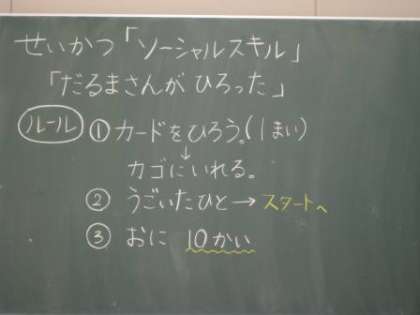 せいかつ「ソーシャルスキル」
「だるまさんが ひろった」
ルール ① カードをひろう。(1まい)
↓
カゴにいれる。
② うごいたひと→スタートへ
③ おに 10かい